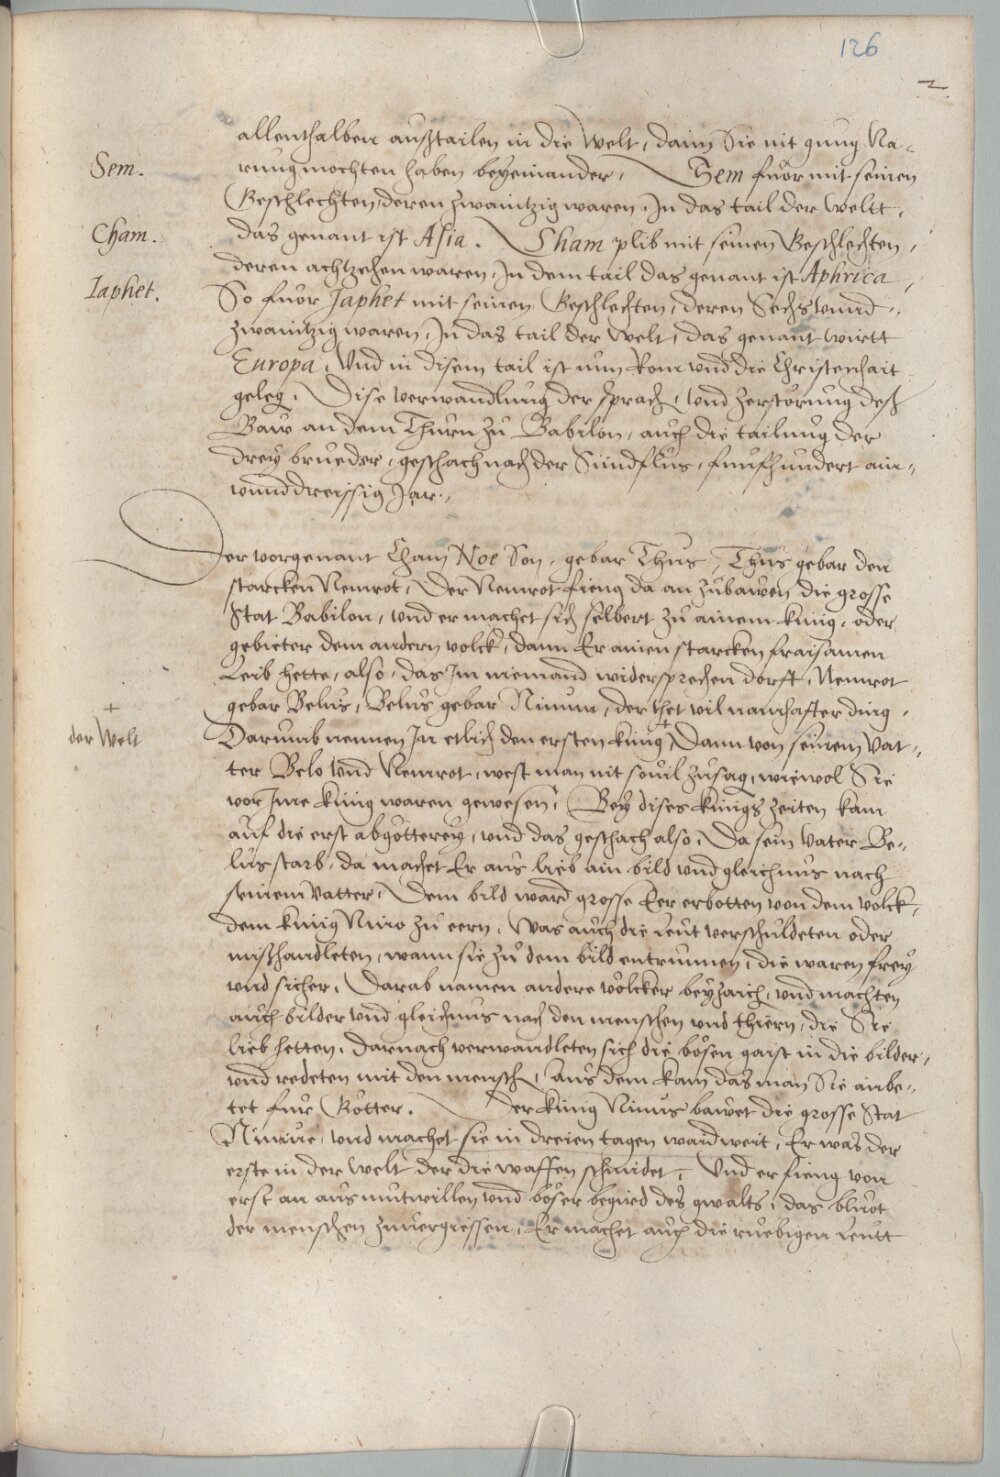 126
2
allenthalben außtailen in die Welt, dann Sie nit gnug Na-
Sem.
rung mochten haben beyeinander. Sem fuor mit seinen
Geschlechten, deren zwaintzig waren, In das tail der Weltt,
Cham.
das genant ist Asia. Cham plib mit seinen Geschlechten,
deren achtzehen waren, In dem tail das genant ist Aphrica,
Iaphet.
So fuor Japhet mit seinen Geschlechten, deren Sechs vnnd
zwaintzig waren, In das tail der Welt, das genant wirtt
Europa, Vnd in disem tail ist nun Rom vnd die Christenhait
geleg. Dise verwandlung der sprach, vnd zerstörung deß
Baw an dem Thurn zu Babilon, auch die tailung der
drey brueder, geschach nach der Sündflus, funfhundert ain-
vnnd dreissig Jar.
Der vorgenant Cham Noe Son, gebar Thus, Thus gebar den
starcken Nemrot, Der Nemrot fieng da an zubawen die grosse
Stat Babilon, vnd er machet sich selbert zu ainem kunig, oder
gebieter dem andern volck, dann Er ainen starcken fraisamen
Leib hette, also, das Im niemand widersprechen dorft, Nemrot
gebar Belus, Belus gebar Ninum, der thet vil namhafter ding,
+
der Welt
Darumb nennen In etlich den ersten kunig + Dann von seinem Vat-
ter Belo vnd Nemrot, west man nit souil zusag, wiewol Sie
vor Ime kunig waren gewesen, Bey dises kunigs zeiten kam
auf die erst abgötterey, vnd das geschach also, Da sein Vater Be-
lus starb, da machet Er aus lieb ain bild vnd gleichnus nach
seinem Vatter, Dem bild ward grosse Eer erbotten von dem volck,
dem kunig Nino zu eern, Was auch die leut verschuldeten oder
mißhandleten, wann sie zu dem bild entrunnen, die waren frey
vnd sicher, Darab namen andere völcker beyzaich, vnd machten
auch bilder vnd gleichnus nach den menschen vnd thiern, die Sie
lieb hetten, Darnach verwandleten sich die bösen gaist in die bilder,
vnd redeten mit den mensch, Aus dem kam das man Sie anbe-
tet fur Götter. Der kunig Ninus bawet die grosse Stat
Niniue, vnd machet sie in dreien tagen waid weit, Er was der
erste in der Welt der die waffen schmidet, Vnd er fieng von
erst an aus mutwillen vnd böser begird des gwalts, das bluot
der menschen zuuergiessen, Er machet auch die ruebigen Leutt